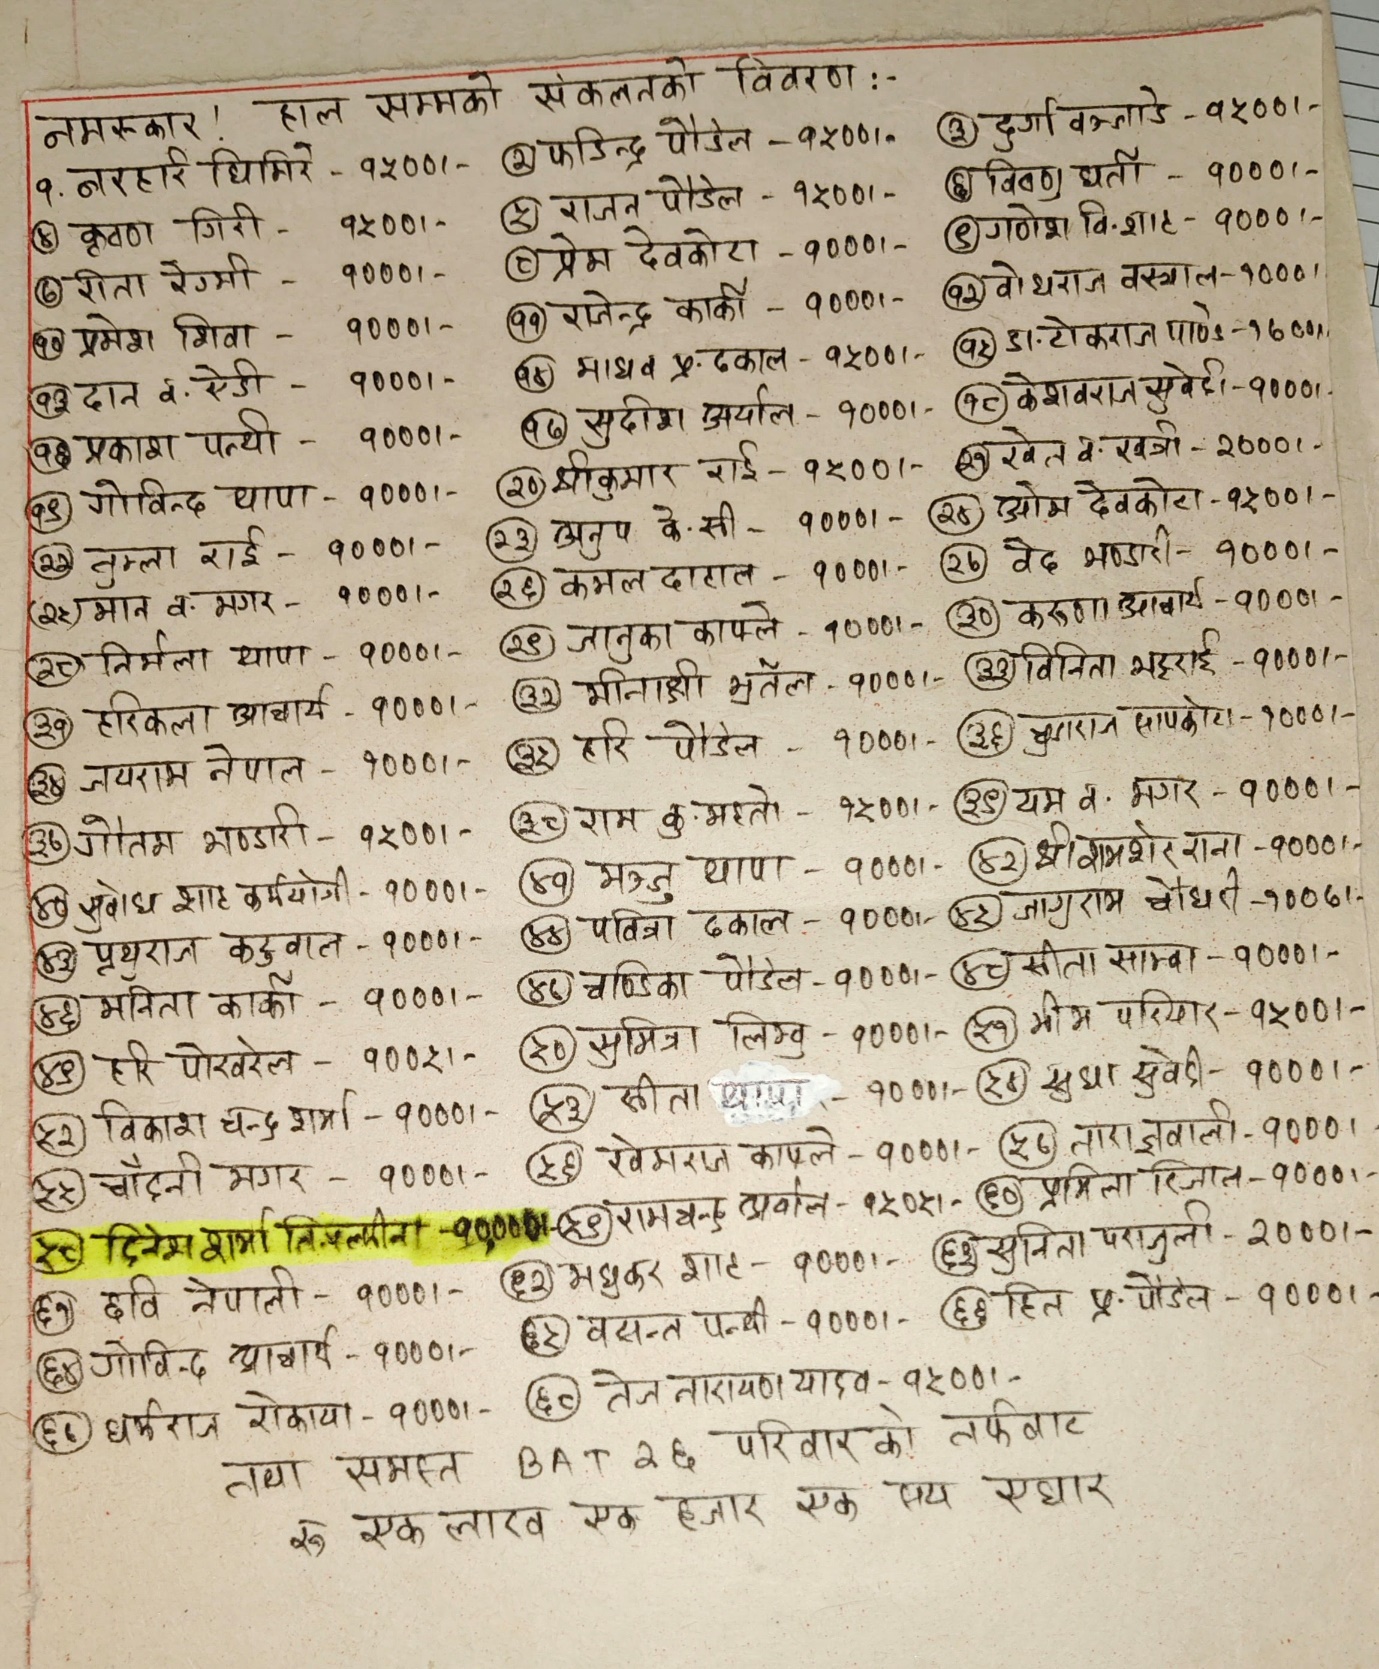 नमस्कार! हाल सम्मको संकलनको विवरण :-
१. नरहरि घिमिरे - १५००।- (२) फडिन्द्र पौडेल - १५००।- (३) दुर्गा वञ्जाडे - १५००।-
(४) कृष्ण गिरी - १५००।- (५) राजन पौडेल - १५००।- (६) विष्णु घर्ती - १०००।-
(७) रीता रेग्मी - १०००।- (८) प्रेम देवकोटा - १०००।- (९) गणेश वि. शाह - १०००।-
(१०) प्रमेश शिवा - १०००।- (११) राजेन्द्र कार्की - १०००।- (१२) वोधराज वस्याल - १०००।
(१३) दान व. रेडी - १०००।- (१४) माधव प्र. ढकाल - १५००।- (१५) डा. टोकराज पाण्डे -
(१६) प्रकाश पन्थी - १०००।- (१७) सुदीश अर्याल - १०००।- (१८) केशवराज सुवेदी - १०००।-
(१९) गोविन्द थापा - १०००।- (२०) श्रीकुमार राई - १५००।- (२१) खेत व. खत्री - २०००।-
(२२) जुम्ला राई - १०००।- (२३) अनुप के.सी - १०००।- (२४) ओम देवकोटा - १५००।-
(२५) मान व. मगर - १०००।- (२६) कमल दाहाल - १०००।- (२७) वेद भण्डारी - १०००।-
(२८) निर्मला थापा - १०००।- (२९) जानुका काफ्ले - १०००।- (३०) करूणा आचार्य - १०००।-
(३१) हरिकला आचार्य - १०००।- (३२) मीनाक्षी भुर्तेल - १०००।- (३३) विनिता भट्टराई - १०००।-
(३४) जयराम नेपाल - १०००।- (३५) हरि पौडेल - १०००।- (३६) सापकोटा - १०००।-
(३७) गौतम भण्डारी - १५००।- (३८) राम कु. महतो - १५००।- (३९) यम व. मगर - १०००।-
(४०) सुवोध शाह कर्मयोगी - १०००।- (४१) मञ्जु थापा - १०००।- (४२) श्री शमशेर राना - १०००।-
(४३) पृथुराज कटुवाल - १०००।- (४४) पवित्रा ढकाल - १०००।- (४५) जागुराम चौधरी - १००७।-
(४६) मनिता कार्की - १०००।- (४७) चण्डिका पौडेल - १०००।- (४८) सीता साम्वा - १०००।-
(४९) हरि पोखरेल - १००५।- (५०) सुमित्रा लिम्वु - १०००।- (५१) भीम परियार - १५००।-
(५२) विकाश चन्द्र शर्मा - १०००।- (५३) सीता थापा - १०००।- (५४) सुधा सुवेदी - १०००।-
(५५) चाँदनी मगर - १०००।- (५६) खेमराज काफ्ले - १०००।- (५७) तारा ज्ञवाली - १०००।
(५८) दिनेश शर्मा - १०,०००।- (५९) रामचन्द्र अर्याल - १५०५।- (६०) प्रमिला रिजाल - १०००।-
(६१) छवि नेपाली - १०००।- (६२) मधुकर शाह - १०००।- (६३) सुनिता पराजुली - २०००।-
(६४) गोविन्द आचार्य - १०००।- (६५) वसन्त पन्थी - १०००।- (६६) हित प्र. पौडेल - १०००।-
(६७) धर्मराज रोकाया - १०००।- (६८) तेज नारायण यादव - १५००।-
तथा समस्त BAT २६ परिवारको तर्फबाट
रु एक लाख एक हजार एक सय एघार